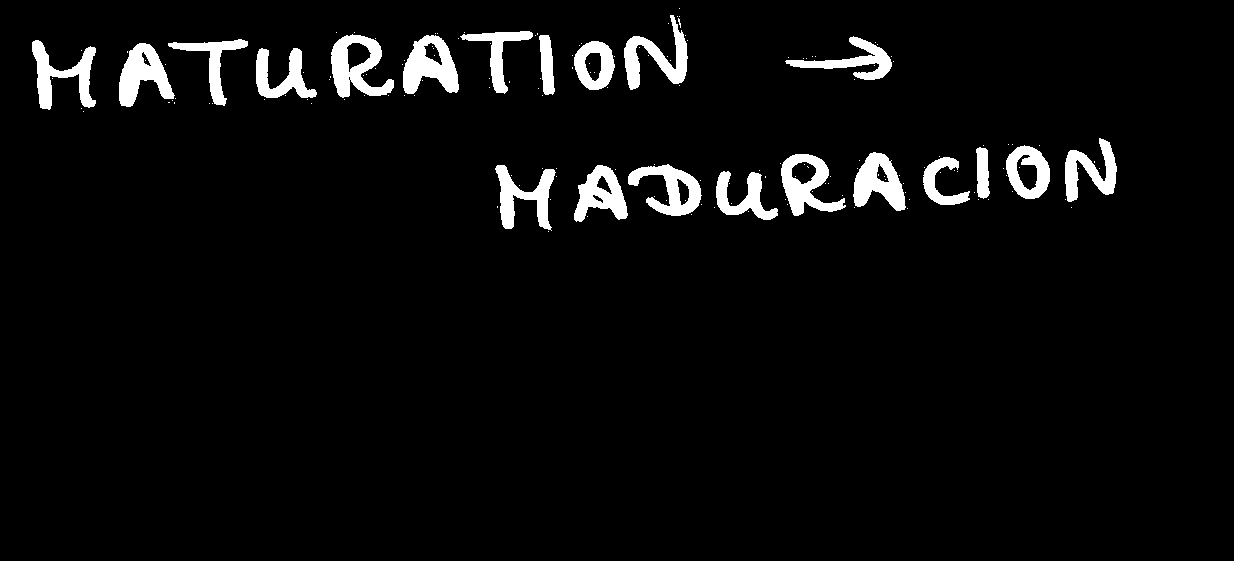 MATURATION →
MADURACION